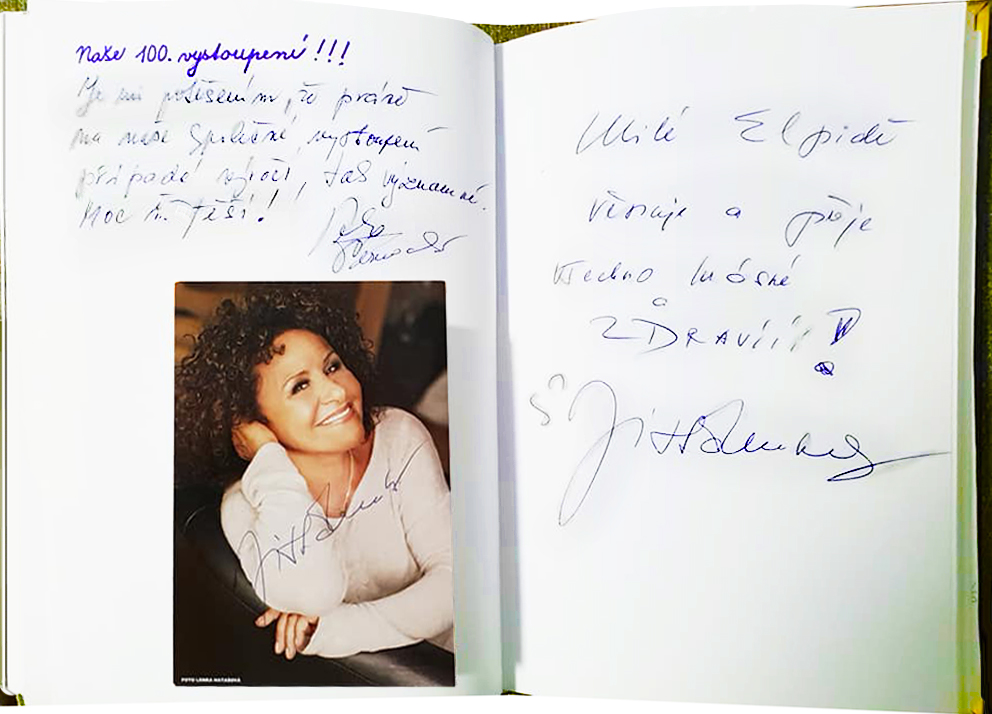 Naše 100. vystoupení!!!
Je mi potěšením, že právě
na naše společné vystoupení
připadá výročí, tak významné.
Moc mě těší!
FOTO LENKA HATAŠOVÁ
Milé Elpidě
věnuje a přeje
všechno krásné
ZDRAVÍÍÍ!
Jitka Zelenková